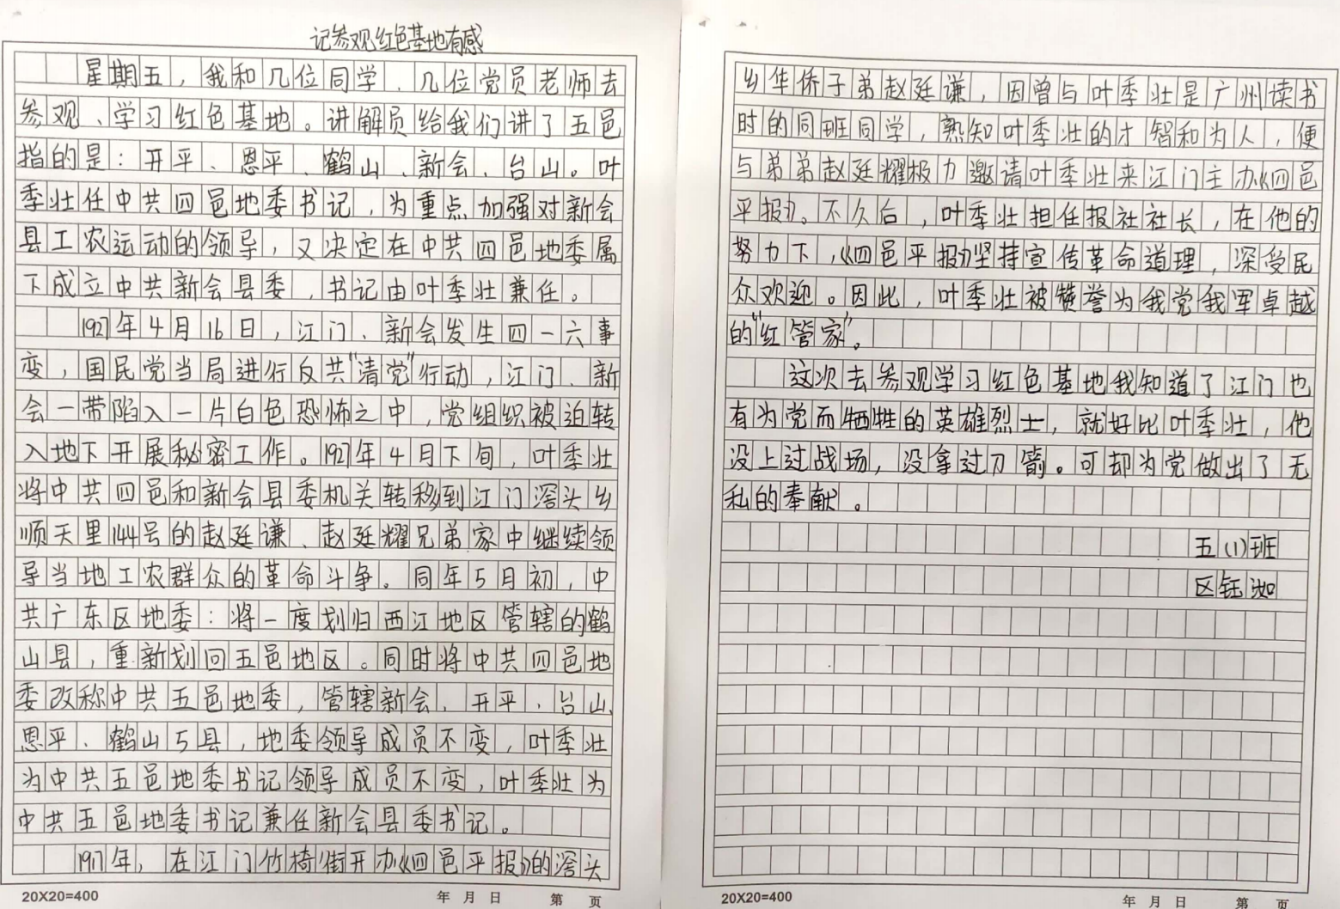 记参观红色基地有感
星期五，我和几位同学、几位党员老师去
参观、学习红色基地。讲解员给我们讲了五邑
指的是：开平、恩平、鹤山、新会、台山。叶
季壮任中共四邑地委书记，为重点加强对新会
县工农运动的领导，又决定在中共四邑地委属
下成立中共新会县委，书记由叶季壮兼任。
1927年4月16日，江门、新会发生四一六事
变，国民党当局进行反共"清党"行动，江门、新
会一带陷入一片白色恐怖之中，党组织被迫转
入地下开展秘密工作。1927年4月下旬，叶季壮
将中共四邑和新会县委机关转移到江门滘头乡
顺天里144号的赵廷谦、赵廷耀兄弟家中继续领
导当地工农群众的革命斗争。同年5月初，中
共广东区地委：将一度划归西江地区管辖的鹤
山县，重新划回五邑地区。同时将中共四邑地
委改称中共五邑地委，管辖新会、开平、台山、
恩平、鹤山5县，地委领导成员不变，叶季壮
为中共五邑地委书记领导成员不变，叶季壮为
中共五邑地委书记兼任新会县委书记。
1917年，在江门竹椅街开办《四邑平报》的滘头
20X20=400 年 月 日 第 页
乡华侨子弟赵廷谦，因曾与叶季壮是广州读书
时的同班同学，熟知叶季壮的才智和为人，便
与弟弟赵廷耀极力邀请叶季壮来江门主办《四邑
平报》。不久后，叶季壮担任报社社长，在他的
努力下，《四邑平报》坚持宣传革命道理，深受民
众欢迎。因此，叶季壮被赞誉为我党我军卓越
的"红管家"。
这次去参观学习红色基地我知道了江门也
有为党而牺牲的英雄烈士，就好比叶季壮，他
没上过战场，没拿过刀箭。可却为党做出了无
私的奉献。
五(1)班
区钰洳
20X20=400 年 月 日 第 页